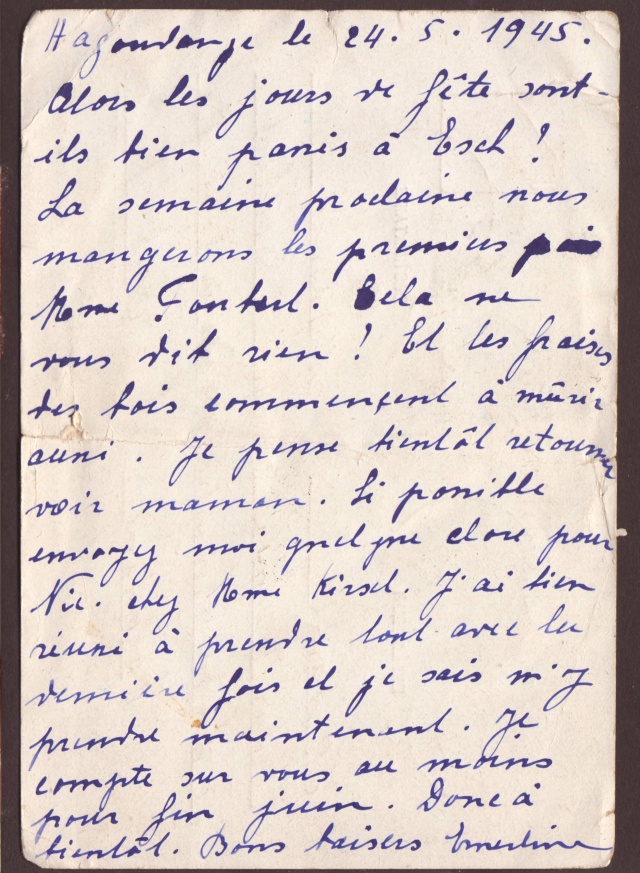 Hagondange le 24.5.1945.
Alors les jours de fête sont-
ils bien passés à Esch !
La semaine prochaine nous
mangerons les premiers pois
Mme Cela ne
vous dit rien ! Et les fraises
des bois commencent à mûrir
aussi. Je pense bientôt retourner
voir maman. Si possible
envoyez moi quelque chose pour
Nic. chez Mme Kirsch. J'ai bien
réussi à prendre tout avec la
dernière fois et je sais m'y
prendre maintenant. Je
compte sur vous au moins
pour fin juin. Donc à
bientôt. Bons baisers Ernestine